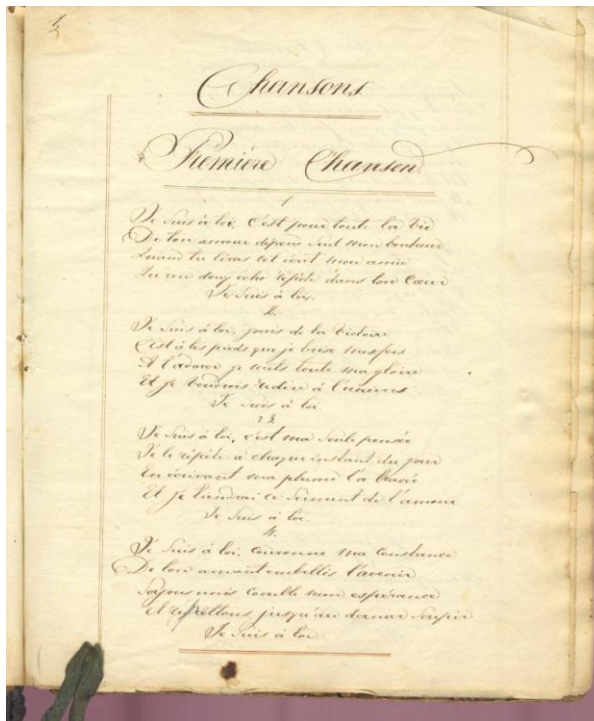 Chansons
Première Chanson
1
Je suis à toi, c'est pour toute la vie
De ton amour dépend seul mon bonheur
Quand tu liras cet écrit mon amie
Qu'un doux écho répète dans ton Cœur
Je suis à toi.
2.
Je suis à toi, jouis de la Victoire
C'est à tes pieds que je baise mes fers
A t'adorer je mets toute ma gloire
Et je voudrois redire à l'univers
Je suis à toi
3.
Je suis à toi, c'est ma seule pensée
Je le répète à chaque instant du jour
En écrivant ma plume l'a tracé
Et je tiendrai ce serment de l'amour
Je suis à toi.
4.
Je suis à toi, couronne ma Constance
De ton amant embellis l'avenir
Soyons unis comble mon espérance
Et répettons jusqu'au dernier soupir
Je suis à toi